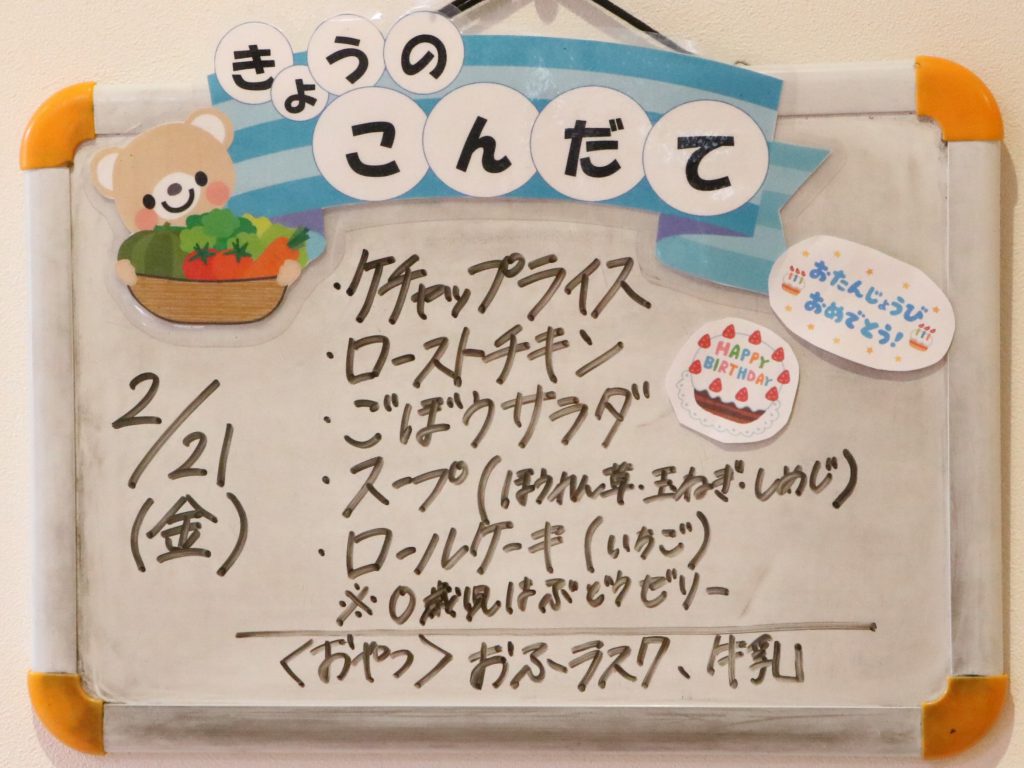 きょうの
こんだて
おたんじょうび
おめでとう!
HAPPY
BIRTHDAY
2/21
(金)
・ケチャップライス
・ローストチキン
・ごぼうサラダ
・スープ(ほうれん草・玉ねぎ・しめじ)
・ロールケーキ(いちご)
※0歳児はぶどうゼリー
〈おやつ〉おふラスク、牛乳